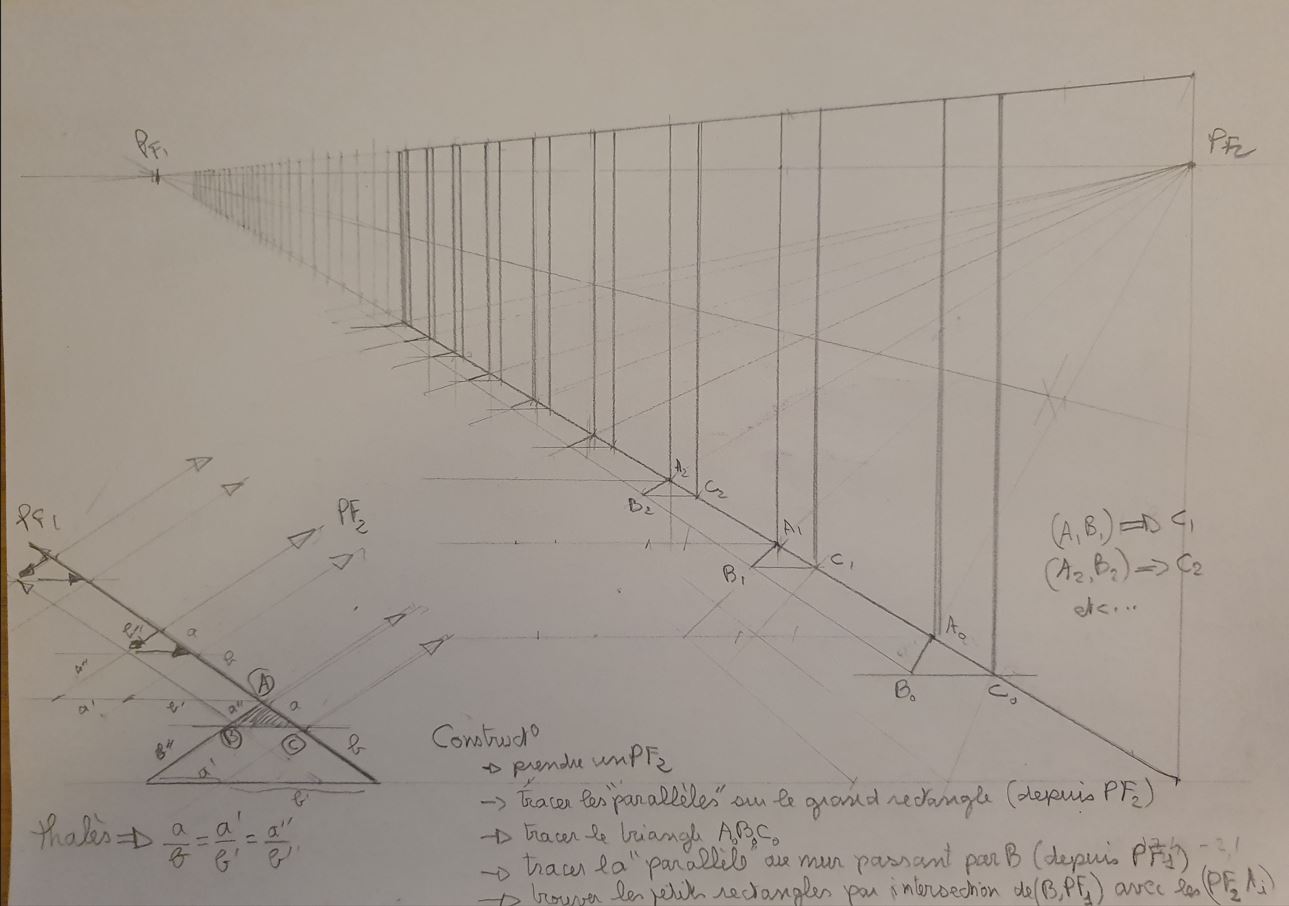 PF₁
PF₂
A₂
C₂
B₂
A₁
C₁
B₁
A₀
B₀
C₀
(A₁B₁) ⇒ C₁
(A₂, B₂) ⇒ C₂
etc...
PF₁
PF₂
b''
a
b
a''
a'
b'
A
a''
a
B
C
b
B''
a'
b'
Thalès ⇒ a/b = a'/b' = a''/b''
Construct°
→ prendre un PF₂
→ tracer les "parallèles" sur le grand rectangle (depuis PF₂)
→ tracer le triangle A₀B₀C₀
→ tracer la "parallèle au mur passant par B (depuis PF₁)
→ trouver les petits rectangles par intersection de (B,PF₁) avec les (PF₂ Ai)